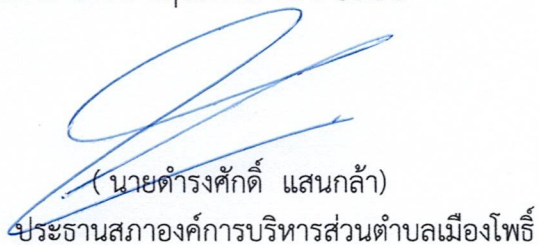 ( นายดำรงศักดิ์ แสนกล้า)
ประธานสภาองค์การบริหารส่วนตำบลเมืองโพธิ์